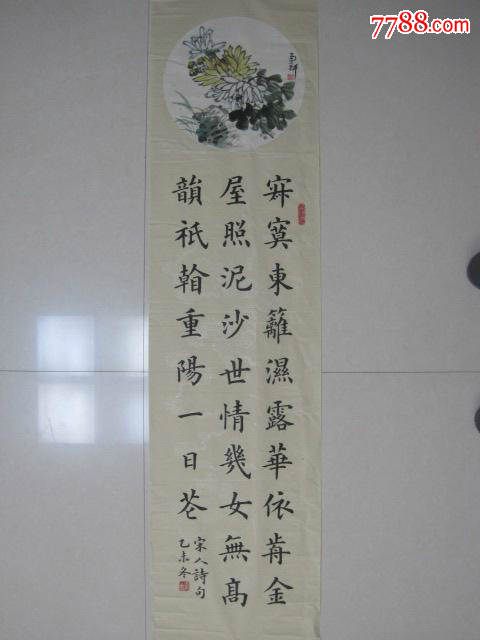 7788.com
寂寞東籬濕露華依前金
屋照泥沙世情幾女無髙
韻祇翰重陽一日花
宋人詩句
乙未冬